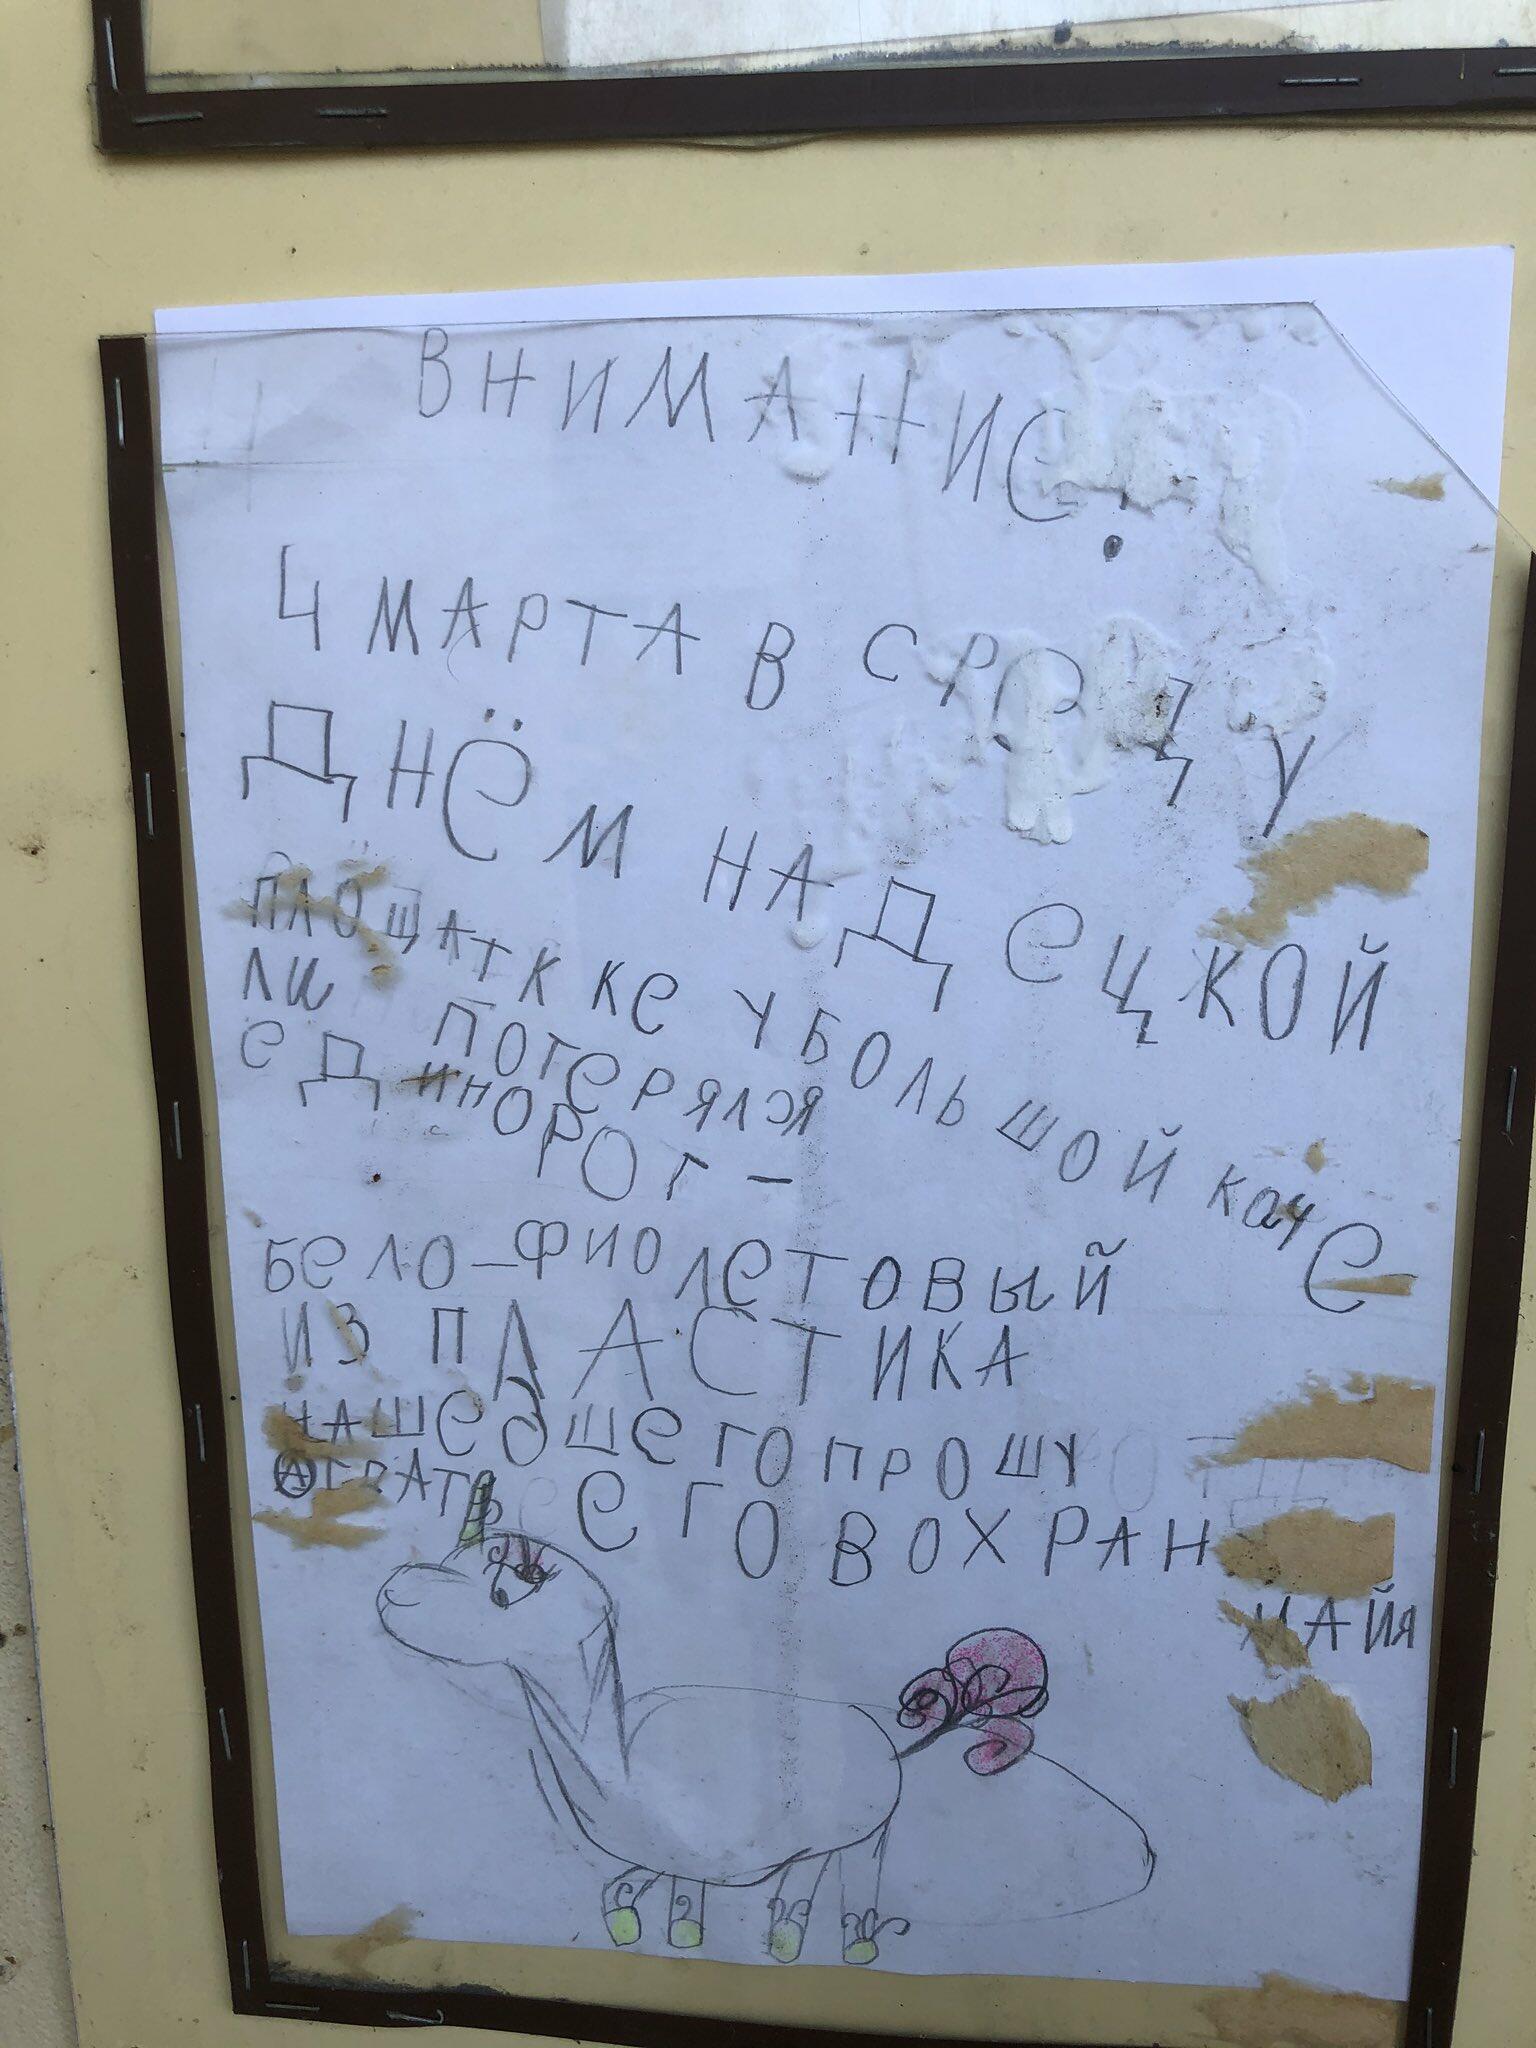 ВНИМАНИЕ!
4 МАРТА В СРЕДУ
ДНЁМ НА ДЕЦКОЙ
ПЛОЩАТККЕ У БОЛЬШОЙ КАЧЕ
ЛИ ПОТЕРЯЛСЯ
ЕДИНОРОГ –
БЕЛО–ФИОЛЕТОВЫЙ
ИЗ ПЛАСТИКА
НАШЕДШЕГО ПРОШУ
ЕГО ВОХРАН
МАЙЯ